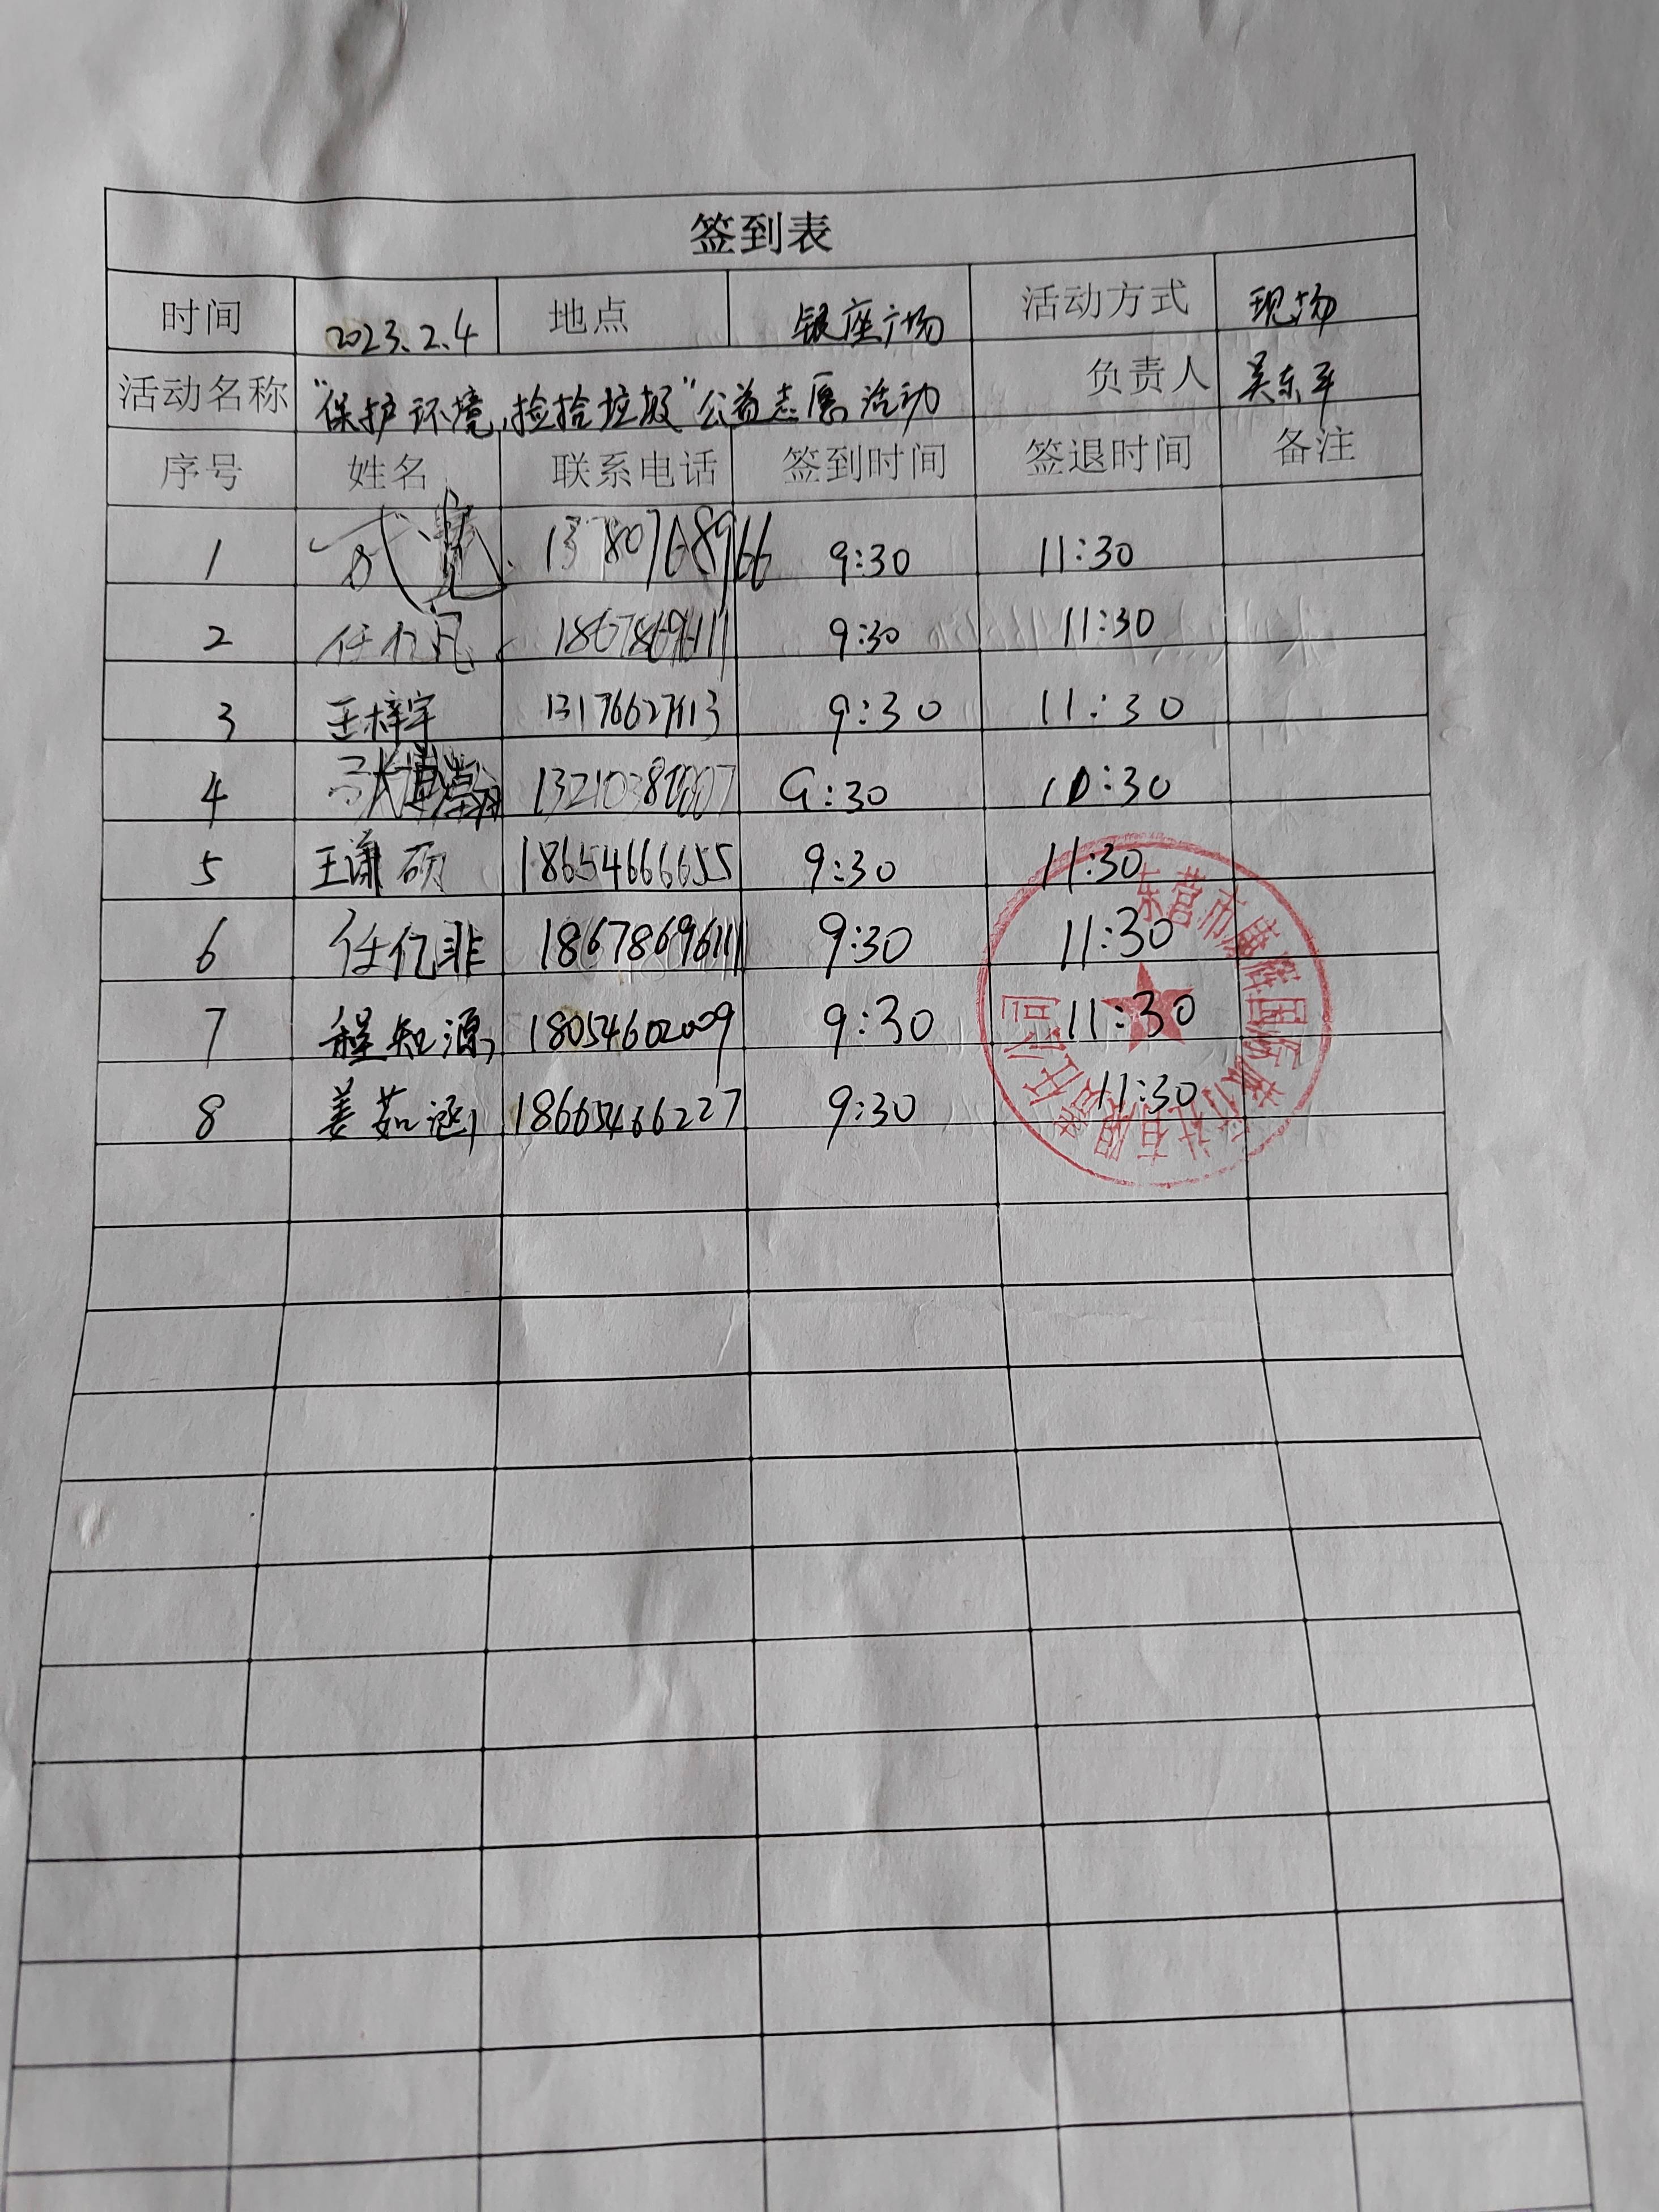 签到表
时间 2023.2.4 地点 银座广场 活动方式 现场
活动名称 "保护环境,捡拾垃圾"公益志愿活动 负责人 吴东平
序号 姓名 联系电话 签到时间 签退时间 备注
1 13780768966 9:30 11:30
2 任亿凡 18678696111 9:30 11:30
3 王梓宇 9:30 11:30
4 9:30 10:30
5 王谦硕 18654666655 9:30 11:30
6 任亿非 18678696111 9:30 11:30
7 程知源 18054602009 9:30 11:30
8 姜茹涵 18665466227 9:30 11:30
东营市 国际旅行社有限责任公司